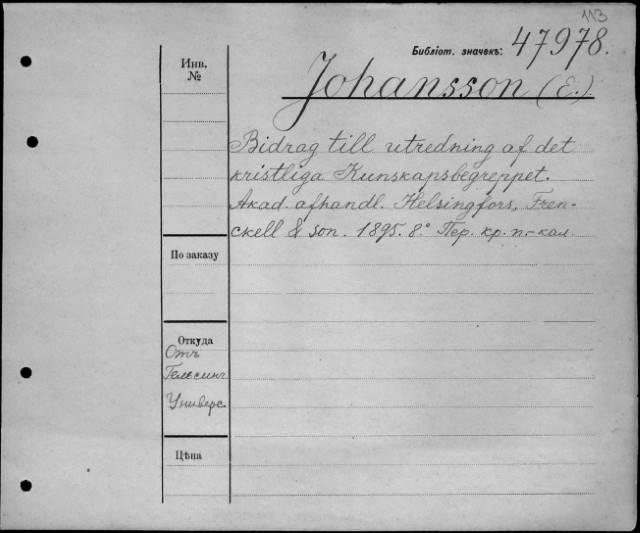 113
Библіот. значекъ: 47978.
Инв.
№
Johansson (E.)
Bidrag till utredning af det
kristliga Kunskapsbegreppet.
Akad. afhandl. Helsingfors, Fren-
ckell & son. 1895. 8.° Пер. кр. п.-кал.
По заказу
Откуда
Отъ
Гельсинг.
Универс.
Цѣна